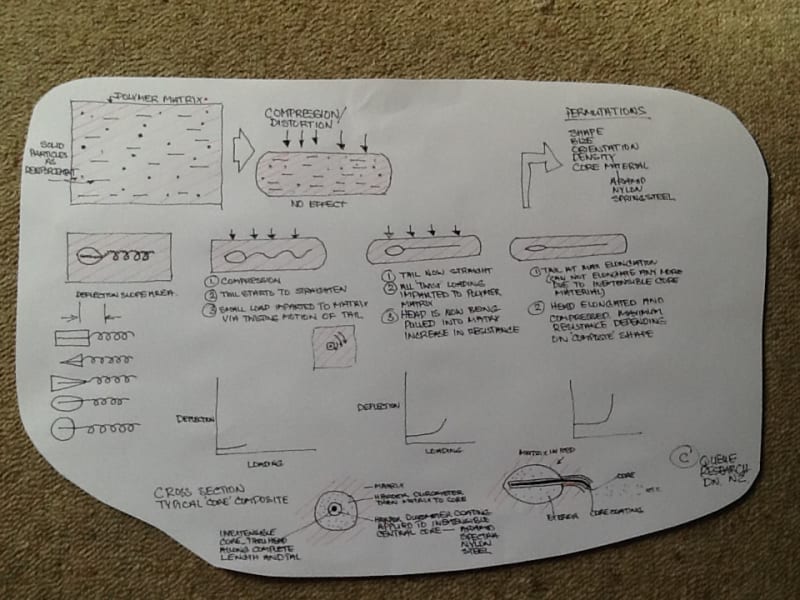 POLYMER MATRIX
SOLID
PARTICLES
AS
REINFORCEMENT
COMPRESSION/
DISTORTION
NO EFFECT
PERMUTATIONS
SHAPE
SIZE
ORIENTATION
DENSITY
CORE MATERIAL
ARAMID
NYLON
SPRING STEEL
DEFLECTION SLOPE AREA.
1 COMPRESSION
2 TAIL STARTS TO STRAIGHTEN
3 SMALL LOAD IMPARTED TO MATRIX
VIA TWISTING MOTION OF TAIL.
1 TAIL NOW STRAIGHT
2 ALL TWIST LOADING
IMPARTED TO POLYMER
MATRIX
3 HEAD IS NOW BEING
PULLED INTO MATRIX
INCREASE IN RESISTANCE
1 TAIL AT MAX ELONGATION
(CAN NOT ELONGATE ANY MORE
DUE TO INEXTENSIBLE CORE
MATERIAL)
2 HEAD ELONGATED AND
COMPRESSED. MAXIMUM
RESISTANCE DEPENDING
ON COMPOSITE SHAPE
DEFLECTION
LOADING
DEFLECTION
LOADING
CROSS SECTION
TYPICAL 'CORE' COMPOSITE
MATRIX
HARDER DUROMETER
THEN MATRIX TO CORE
HARD DUROMETER COATING
APPLIED TO INEXTENSIBLE
CENTRAL CORE — ARAMID
SPECTRA
NYLON
STEEL
INEXTENSIBLE
CORE, THRU HEAD
ALONG COMPLETE
LENGTH AND TAIL
CORE
CORE COATING
EXTERIOR
C
RESEARCH
DN. NZ